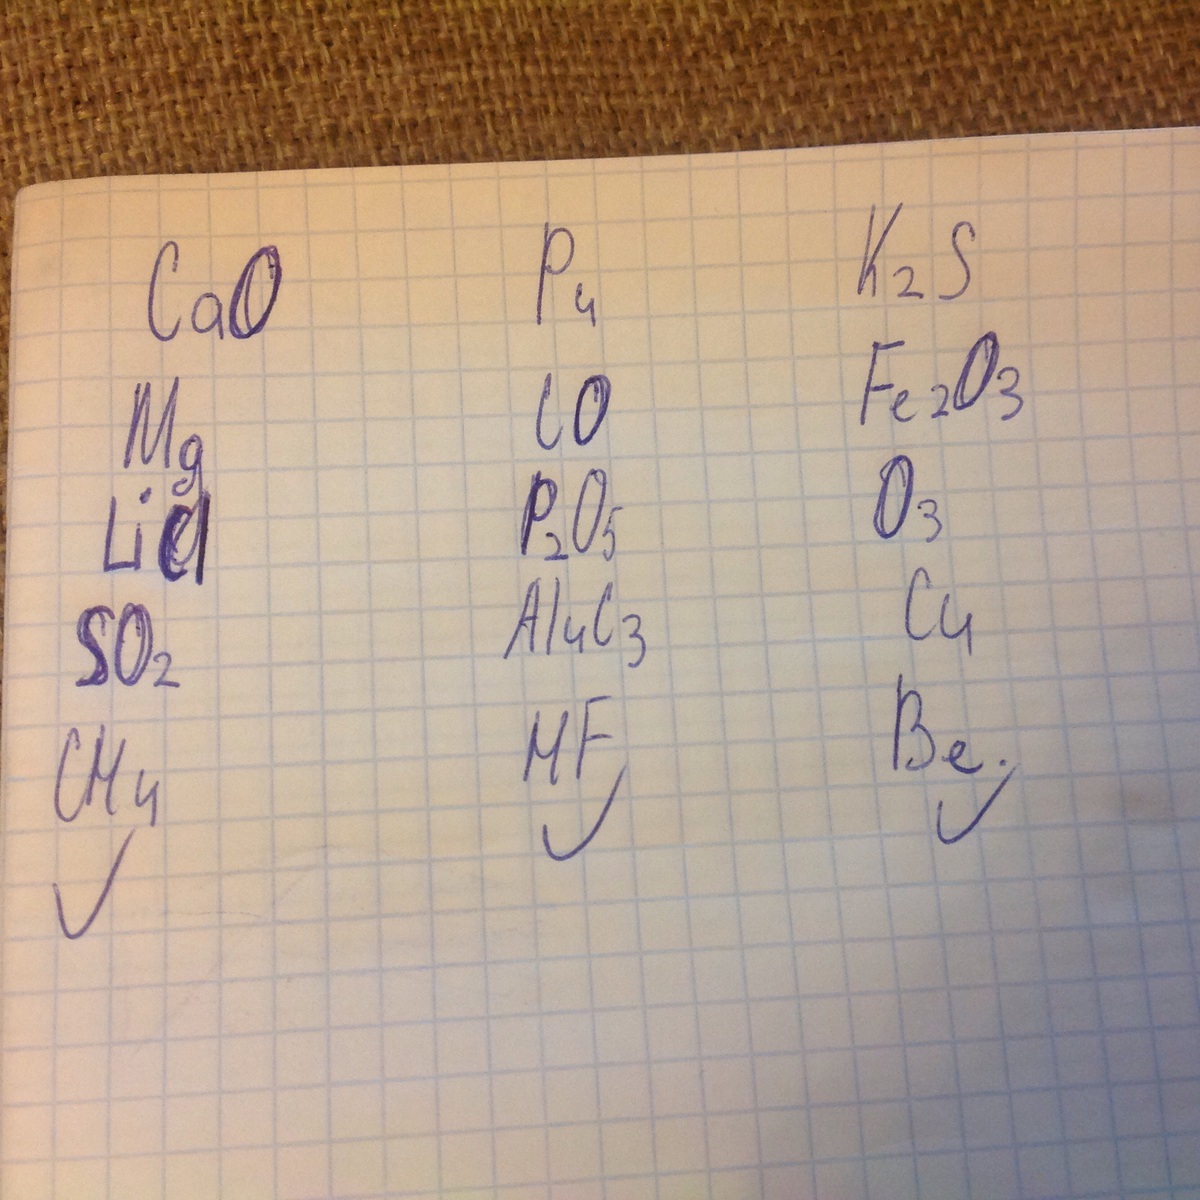 CaO
Mg
LiCl
SO₂
CH₄
P₄
CO
P₂O₅
Al₄C₃
HF
K₂S
Fe₂O₃
O₃
Cu
Be.